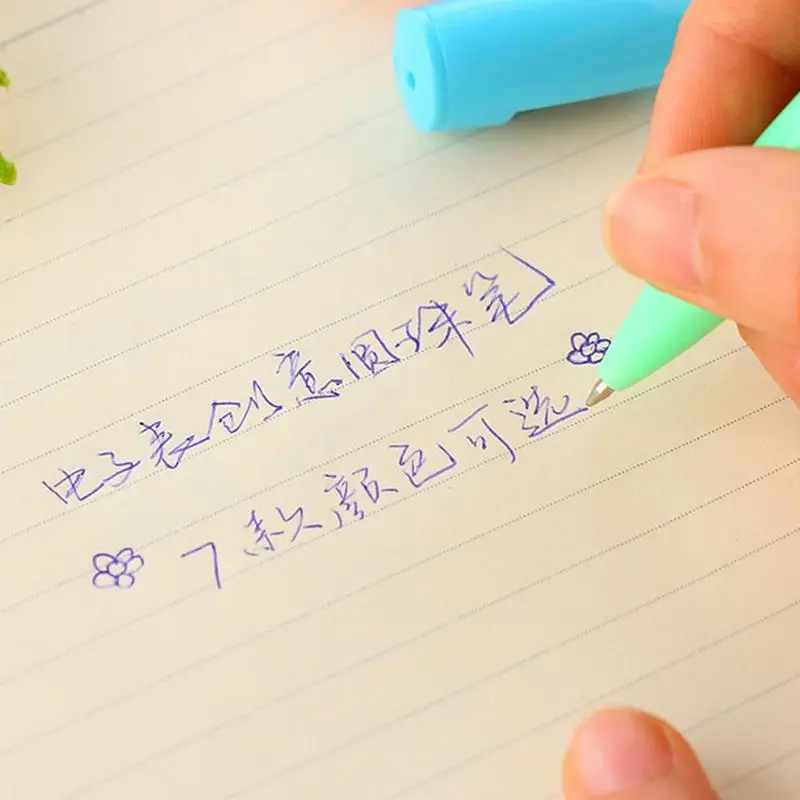 电子表创意圆珠笔
7款颜色可选